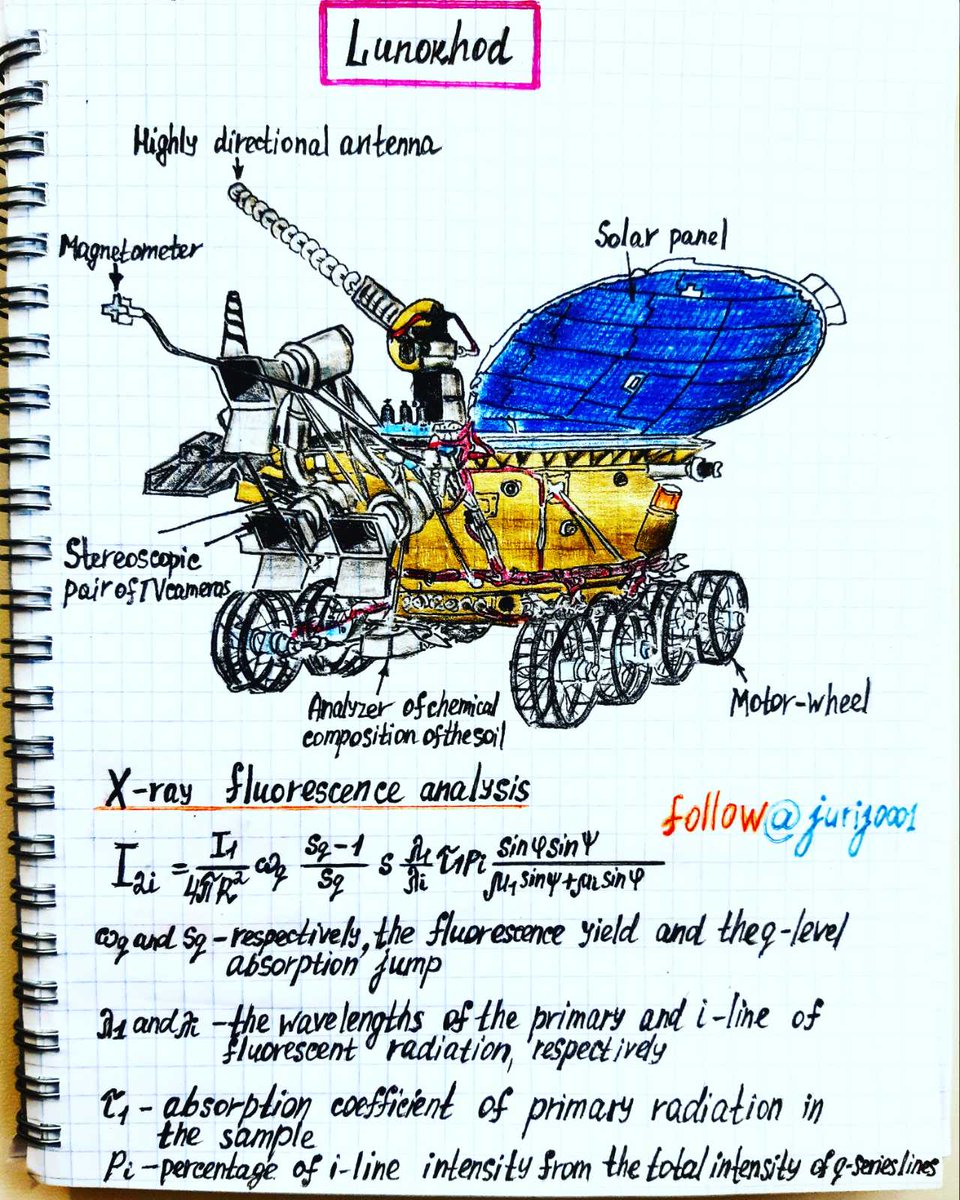 Lunokhod
Highly directional antenna
Magnetometer
Solar panel
Stereoscopic
pair of TV cameras
Motor-wheel
Analyzer of chemical
composition of the soil
X-ray fluorescence analysis
follow@jurij0001
I₂ᵢ = I₁/4πR² ω_q (S_q-1)/S_q s λ₁/λᵢ τ₁pᵢ sinφsinψ/(μ₁sinψ+μ₂sinφ)
ωq and Sq - respectively, the fluorescence yield and the q-level
absorption jump
λ₁ and λi - the wavelengths of the primary and i-line of
fluorescent radiation, respectively
τ₁ - absorption coefficient of primary radiation in
the sample
Pi - percentage of i-line intensity from the total intensity of q-series lines